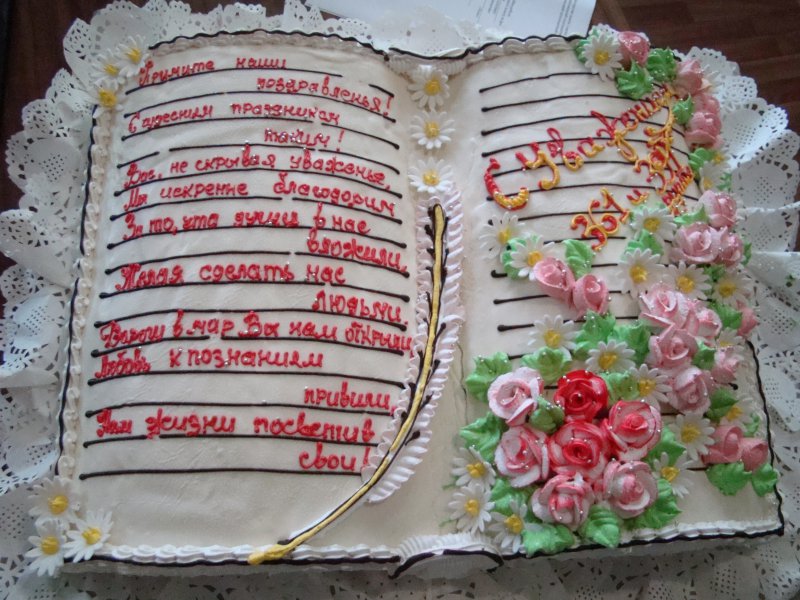 Примите наши
поздравленья!
С чудесным праздником
таким!
Вас, не скрывая уваженье,
Мы искренне благодарим
За то, что души в нас
вложили,
Желая сделать нас
людьми,
Дорогу в мир Вы нам открыли
Любовь к познаниям
привили,
Нам жизни посвятив
свои!
С Уважением
361 и 362